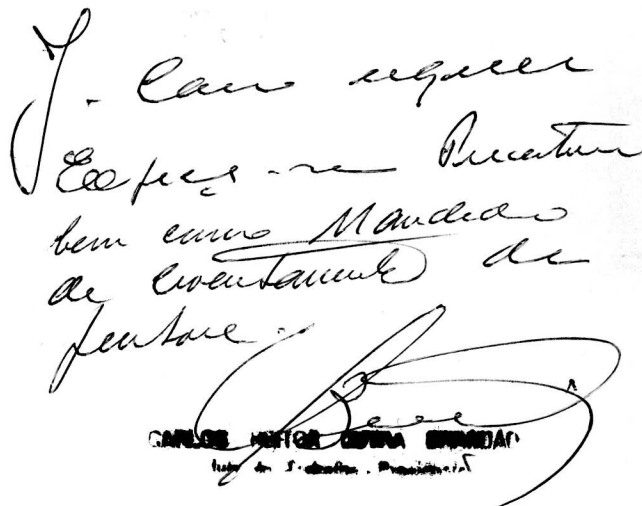 J. Como requer
Expeça-se Precatória
bem como Mandado
de levantamento de
penhora.
CARLOS HEITOR BRANDÃO
Juiz do Trabalho